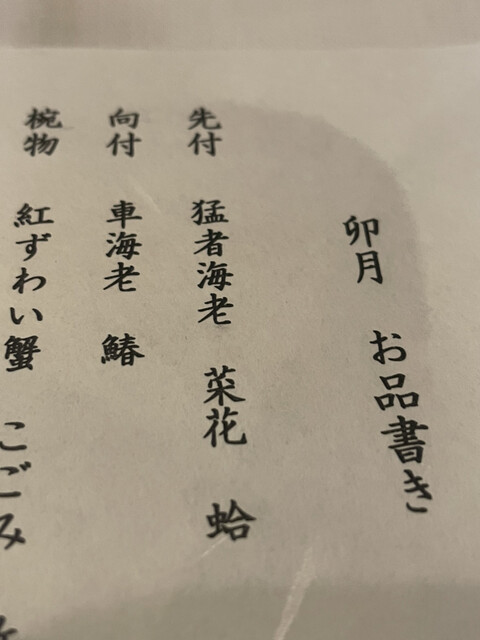 卯月 お品書き
先付 猛者海老 菜花 蛤
向付 車海老 鰆
椀物 紅ずわい蟹 こごみ